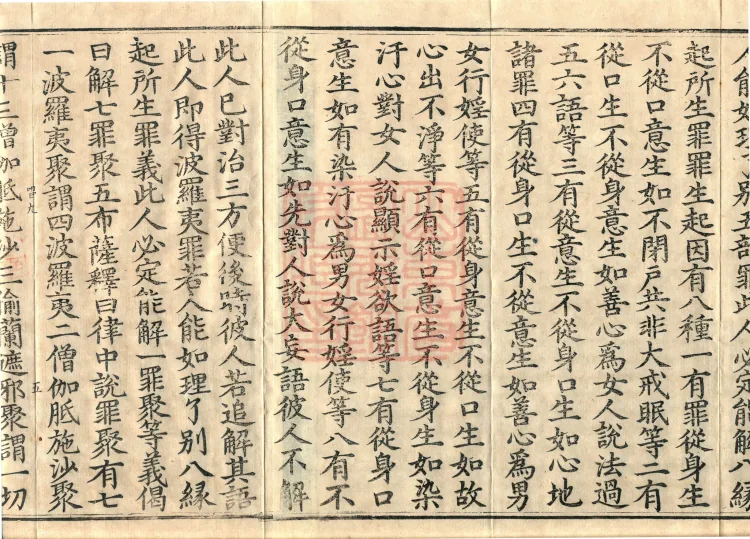 人能如理了別五部罪此人必定能解八縁
起所生罪罪生起因有八種一有罪從身生
不從口意生如不閉戶共非大戒眠等二有
從口生不從身意生如善心爲女人說法過
五六語等三有從意生不從身口生如心地
諸罪四有從身口生不從意生如善心爲男
女行婬使等五有從身意生不從口生如故
心出不淨等六有從口意生不從身生如染
汙心對女人說顯示婬欲語等七有從身口
意生如有染汙心爲男女行婬使等八有不
從身口意生如先對人說大妄語彼人不解
此人已對治三方便後時彼人若追解其語
此人即得波羅夷罪若人能如理了別八縁
起所生罪義此人必定能解一罪聚等義偈
曰解七罪聚五布薩釋曰律中說罪聚有七
一波羅夷聚謂四波羅夷二僧伽胝施沙聚
謂十三僧伽胝施沙三偷蘭遮邪聚謂一切
四九
五